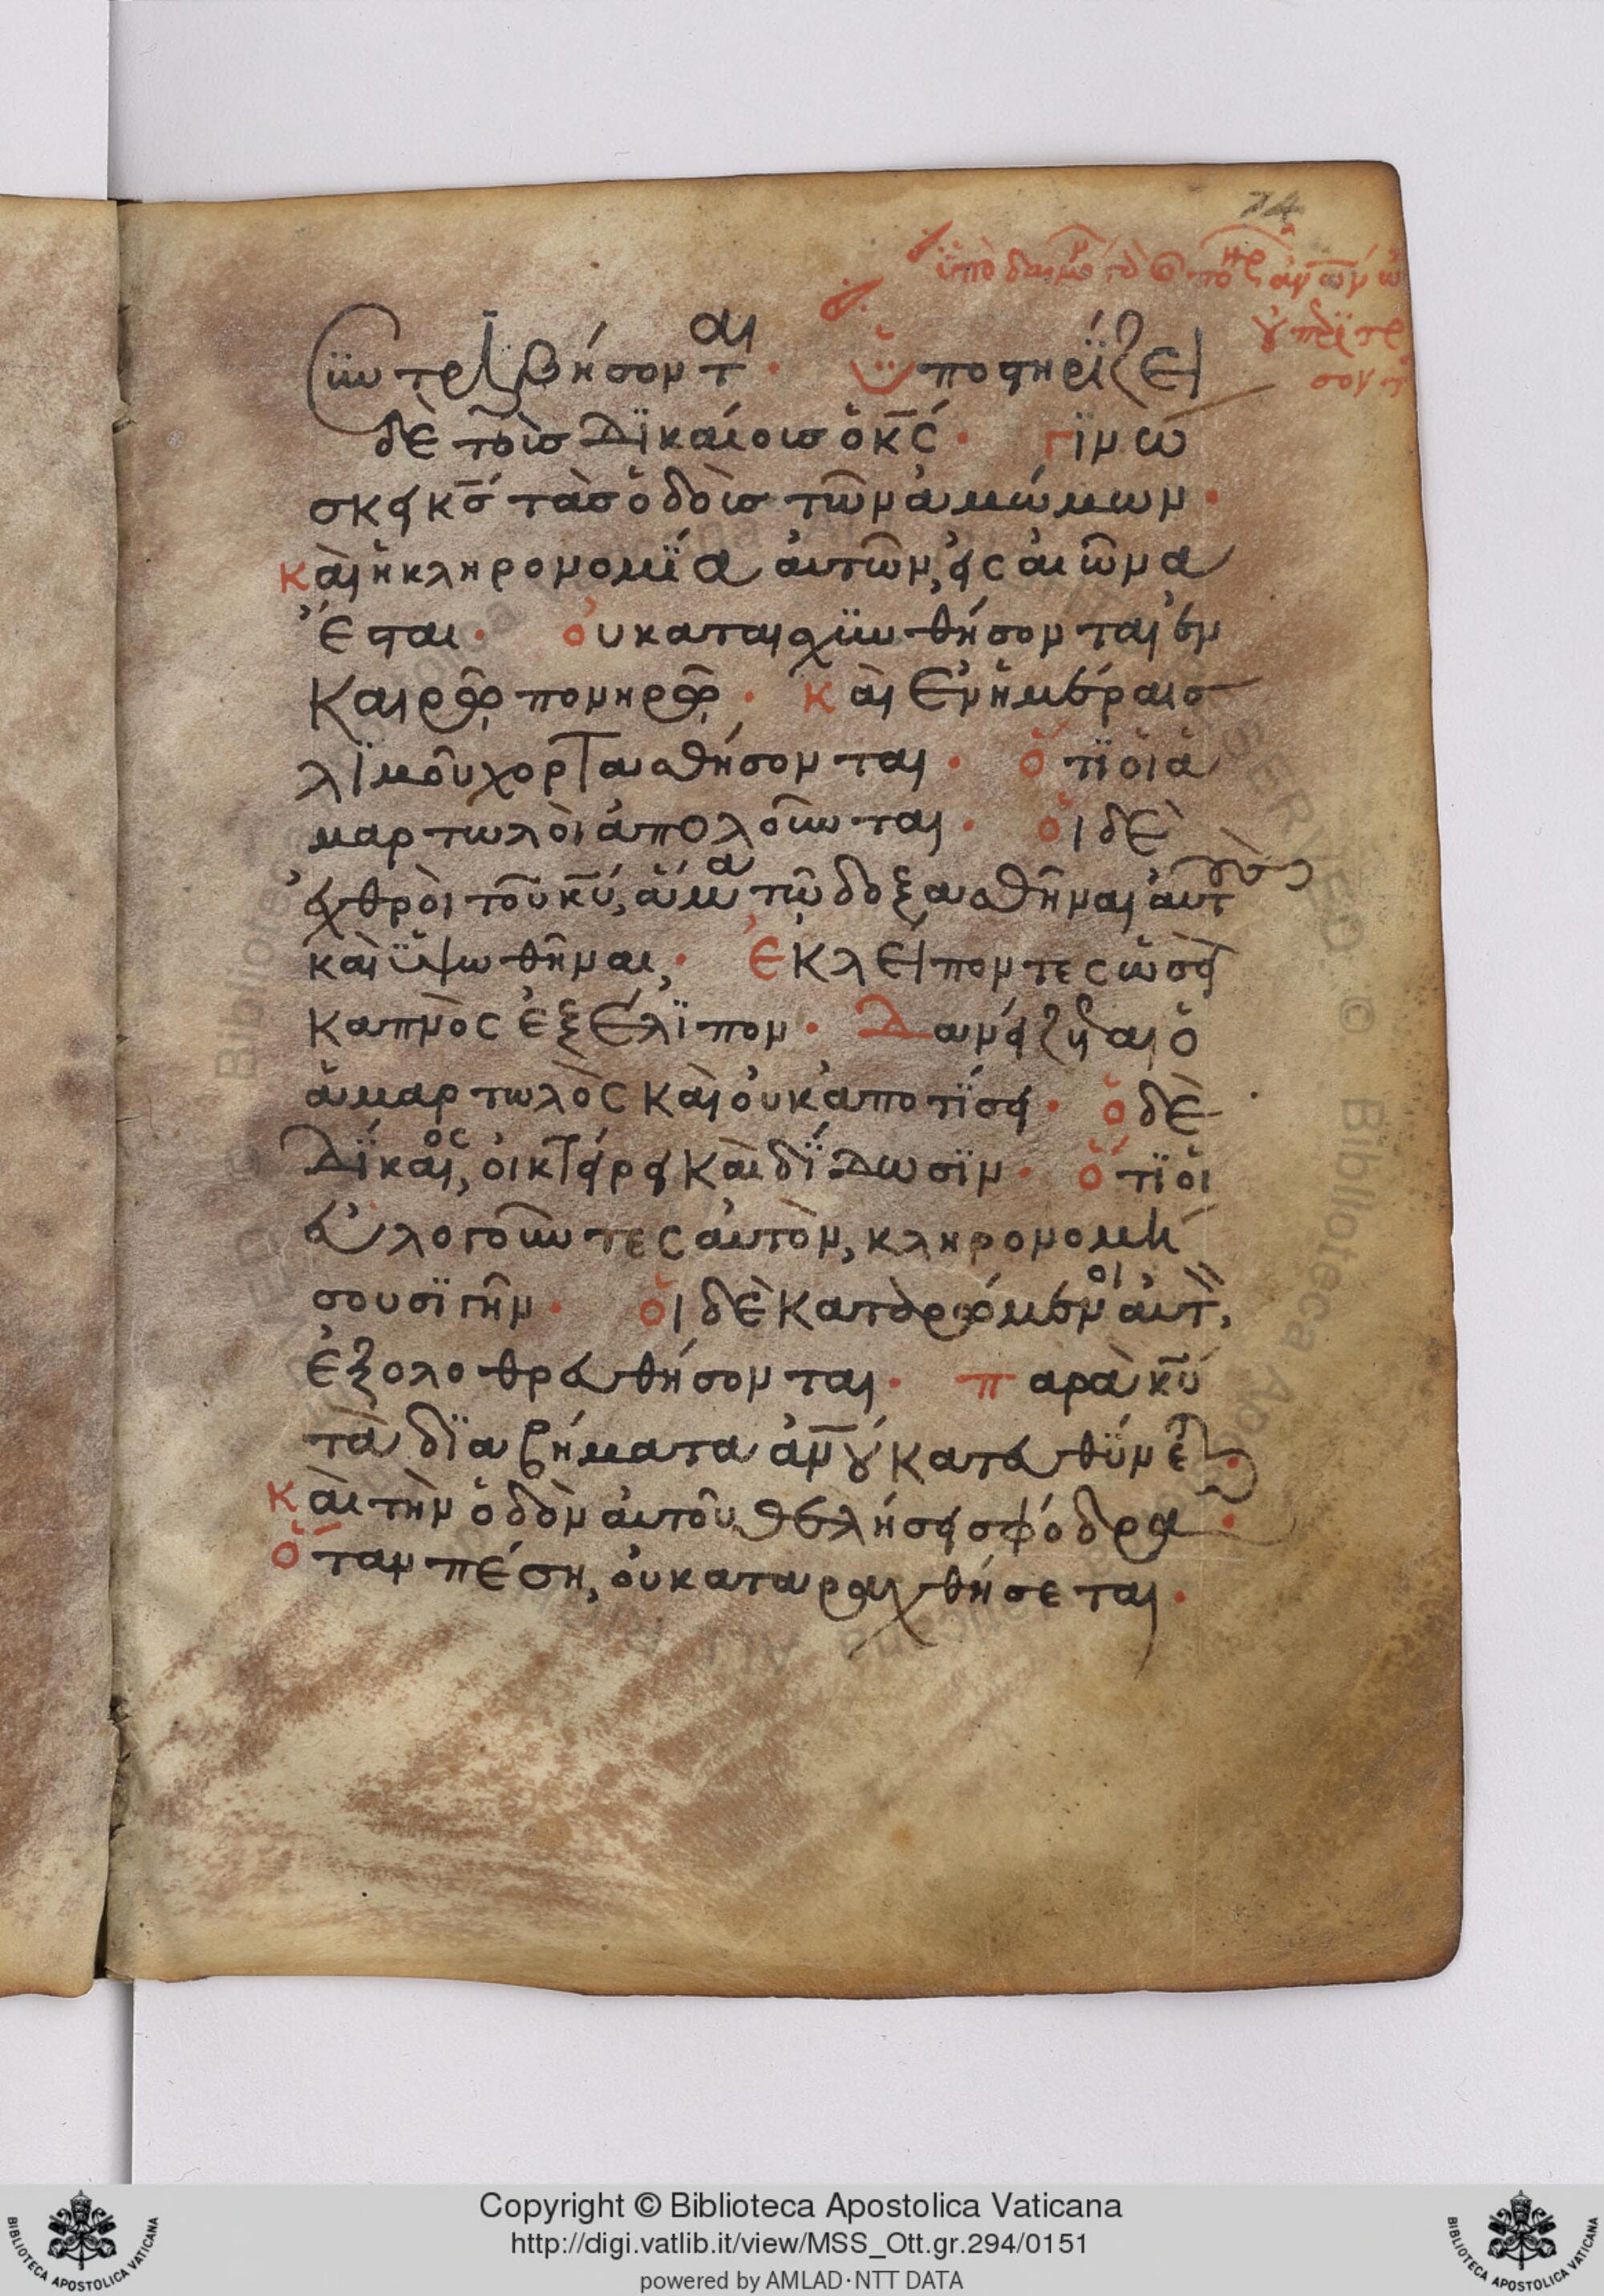 74
συντριβήσονται· ὑποστηρίζει
δὲ τοὺς δικαίους ὁ κς· γινώ
σκει κς τὰς ὁδοὺς τῶν ἀμώμων·
καὶ ἡ κληρονομία αὐτῶν, εἰς αἰῶνα
ἔσται· οὐ καταισχυνθήσονται ἐν
καιρῷ πονηρῷ· καὶ ἐν ἡμέραις
λιμοῦ χορτασθήσονται· ὅτι οἱ ἁ
μαρτωλοὶ ἀπολοῦνται· οἱ δὲ
ἐχθροὶ τοῦ κυ, ἅμα τῷ δοξασθῆναι αὐτοὺς
καὶ ὑψωθῆναι· ἐκλείποντες ὡσεὶ
καπνὸς ἐξέλιπον· δανείζεται ὁ
ἁμαρτωλὸς καὶ οὐκ ἀποτίσει· ὁ δὲ
δίκαιος, οἰκτείρει καὶ δίδωσιν· ὅτι οἱ
εὐλογοῦντες αὐτὸν, κληρονομή
σουσι γῆν· οἱ δὲ καταρώμενοι αὐτὸν,
ἐξολοθρευθήσονται· παρὰ κυ
τὰ διαβήματα ἀνου κατευθύνεται·
καὶ τὴν ὁδὸν αὐτοῦ θελήσει σφόδρα·
ὅταν πέσῃ, οὐ καταραχθήσεται·
Copyright © Biblioteca Apostolica Vaticana
http://digi.vatlib.it/view/MSS_Ott.gr.294/0151
powered by AMLAD·NTT DATA
BIBLIOTECA APOSTOLICA VATICANA
BIBLIOTECA APOSTOLICA VATICANA